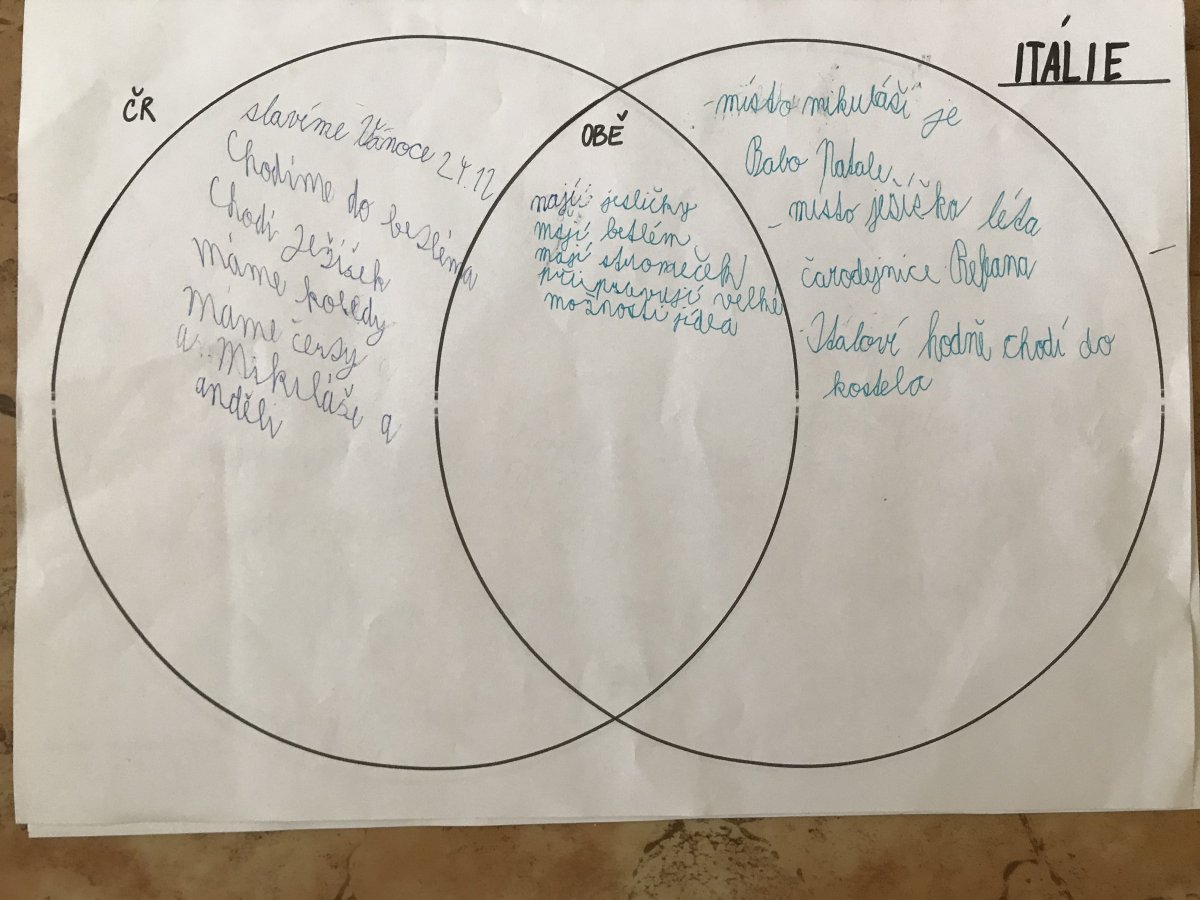 ČR
slavíme Vánoce 24.12
Chodíme do betléma
Chodí Ježíšek
Máme koledy
Máme čerty
a Mikuláše a
anděli
OBĚ
mají jesličky
mají betlém
mají stromeček
připravují velké
možnosti jídla
ITÁLIE
-místo mikuláší je
Babo Natale
- místo ježíška léta
čarodejnice Befana
-Italové hodně chodí do
kostela